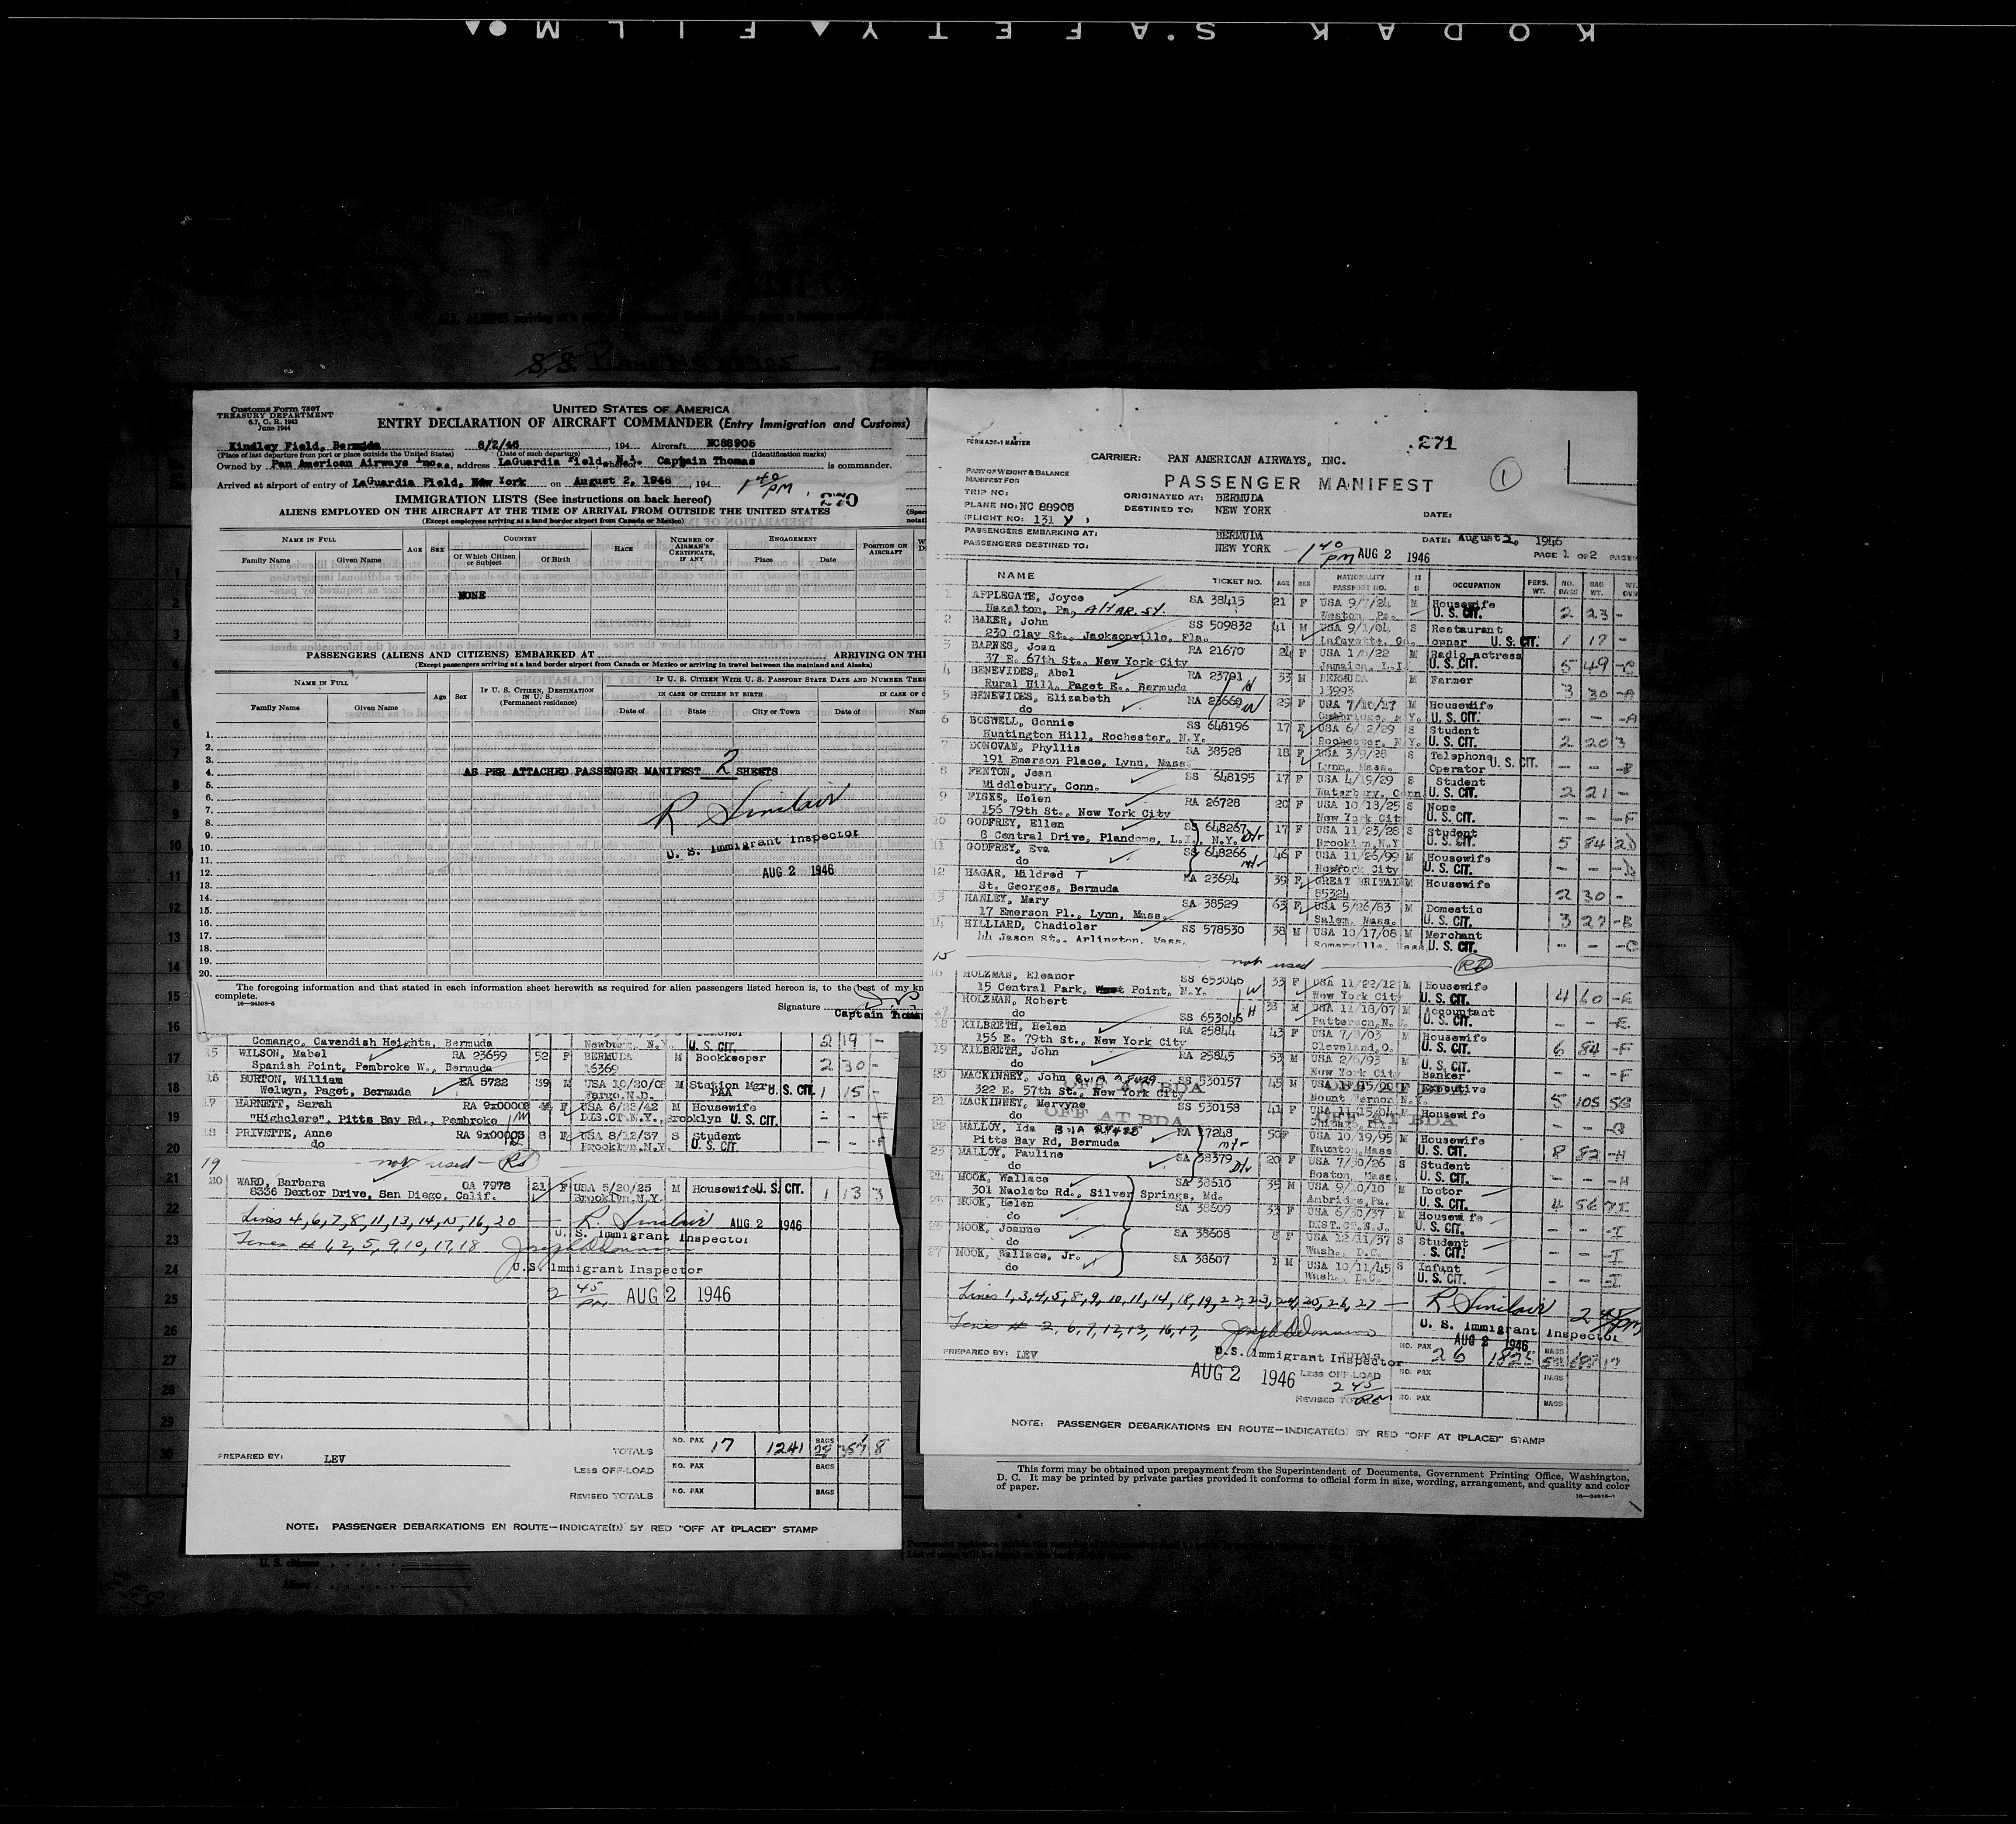 KODAK SAFETY FILM
Customs Form 7507
TREASURY DEPARTMENT
6.7, C. R. 1943
June 1944
UNITED STATES OF AMERICA
ENTRY DECLARATION OF AIRCRAFT COMMANDER (Entry Immigration and Customs)
Kindley Field, Bermuda 8/2/46, 194 Aircraft NC88905
(Place of last departure from port or place outside the United States) (Date of such departure) (Identification marks)
Owned by Pan American Airways Inc., address LaGuardia Field, N.Y. whereof Captain Thomas is commander.
Arrived at airport of entry of LaGuardia Field, New York on August 2, 1946, 194 1 40 PM
270
IMMIGRATION LISTS (See instructions on back hereof)
ALIENS EMPLOYED ON THE AIRCRAFT AT THE TIME OF ARRIVAL FROM OUTSIDE THE UNITED STATES
(Except employees arriving at a land border airport from Canada or Mexico)
NAME IN FULL AGE SEX COUNTRY RACE NUMBER OF AIRMAN'S CERTIFICATE, IF ANY ENGAGEMENT POSITION ON AIRCRAFT
Family Name Given Name Of Which Citizen or Subject Of Birth Place Date
NONE
PASSENGERS (ALIENS AND CITIZENS) EMBARKED AT ARRIVING ON TH
(Except passengers arriving at a land border airport from Canada or Mexico or arriving in travel between the mainland and Alaska)
NAME IN FULL Age Sex IF U. S. CITIZEN, DESTINATION IN U. S. (Permanent residence) IF U. S. CITIZEN WITH U. S. PASSPORT STATE DATE AND NUMBER THE
IN CASE OF CITIZEN BY BIRTH IN CASE OF C
Family Name Given Name Date of State City or Town Date of Nam
1.
2.
3.
4. AS PER ATTACHED PASSENGER MANIFEST 2 SHEETS
5.
6.
7. R Sinclair
8.
9. U. S. Immigrant Inspector
10.
11.
12. AUG 2 1946
13.
14.
15.
16.
17.
18.
19.
20.
The foregoing information and that stated in each information sheet herewith as required for alien passengers listed hereon is, to the best of my kn
complete.
Signature
Captain Thomas
Comango, Cavendish Heights, Bermuda Newburg, N.Y. U. S. CIT. 2 19 -
15 WILSON, Mabel RA 23659 52 F BERMUDA M Bookkeeper
Spanish Point, Pembroke W., Bermuda 16369 2 30 -
16 BURTON, William RA 5722 39 M USA 10/20/06 M Station Mgr U. S. CIT.
Welwyn, Paget, Bermuda Fargo, N.D. PAA 1 15 -
17 HARNETT, Sarah F USA 6/23/42 M Housewife
"Highclere", Pitts Bay Rd., Pembroke DIS.CT.N.Y., Brooklyn U. S. CIT.
18 PRIVETTE, Anne RA 9x00003 8 F USA 8/12/37 S Student
do Brooklyn, N.Y. U. S. CIT. - - F
19 not used RS
20 WARD, Barbara OA 7978 21 F USA 5/20/25 M Housewife U. S. CIT.
8336 Dexter Drive, San Diego, Calif. Brooklyn, N.Y. 1 13 3
Lines 4,6,7,8,11,13,14,15,16,20 R. Sinclair AUG 2 1946
U. S. Immigrant Inspector
Lines # 1,2,5,9,10,17,18
U.S. Immigrant Inspector
2 45 PM AUG 2 1946
PREPARED BY: LEV
TOTALS NO. PAX 17 1241 BAGS 28 357 8
LESS OFF-LOAD NO. PAX BAGS
REVISED TOTALS NO. PAX BAGS
NOTE: PASSENGER DEBARKATIONS EN ROUTE—INDICATE(D) BY RED "OFF AT (PLACE)" STAMP
271
1
CARRIER: PAN AMERICAN AIRWAYS, INC.
PART OF WEIGHT & BALANCE
MANIFEST FOR
PASSENGER MANIFEST
TRIP NO: ORIGINATED AT: BERMUDA
PLANE NO: NC 88905 DESTINED TO: NEW YORK DATE:
FLIGHT NO: 131 Y
PASSENGERS EMBARKING AT: BERMUDA DATE: August 2, 1946
PASSENGERS DESTINED TO: NEW YORK 1 40 PM AUG 2 1946 PAGE 1 OF 2 PAGES
NAME TICKET NO. AGE SEX NATIONALITY PASSPORT NO. M S OCCUPATION PERS. WT. NO. BAGS BAG WT.
1 APPLEGATE, Joyce SA 38415 21 F USA 9/7/24 M Housewife
Hazelton, Pa, Weston, Pa. U. S. CIT. 2 23 -
2 BAKER, John SS 509832 41 M USA 9/1/04 S Restaurant
230 Clay St., Jacksonville, Fla. Lafayette, Ga. owner U. S. CIT. 1 17 -
3 BARNES, Joan RA 21670 24 F M Radio actress
37 E. 67th St., New York City Jamaica, L.I. U. S. CIT. 5 49 -C
4 BENEVIDES, Abel RA 23701 33 M BERMUDA M Farmer
Rural Hill, Paget E., Bermuda 13993 3 30 -A
5 BENEVIDES, Elizabeth RA 23660 29 F USA 7/10/17 M Housewife
do Cambridge, N.Y. U. S. CIT. - - -A
6 BOSWELL, Connie SS 648196 17 F USA 6/12/29 S Student
Huntington Hill, Rochester, N.Y. Rochester, N.Y. U. S. CIT. 2 20 3
7 DONOVAN, Phyllis SA 38528 18 F USA 3/9/28 S Telephone U. S. CIT.
191 Emerson Place, Lynn, Mass. Lynn, Mass. Operator - - -B
8 FENTON, Jean SS 648195 17 F USA 4/19/29 S Student
Middlebury, Conn. Waterbury, Conn U. S. CIT. 2 21 -
9 FISKE, Helen RA 26728 20 F USA 10/13/25 S None
156 79th St., New York City New York City U. S. CIT. - - -F
10 GODFREY, Ellen SS 648267 17 F USA 11/23/28 S Student
6 Central Drive, Plandome, L.I., N.Y. Brooklyn, N.Y U. S. CIT. 5 84 2D
11 GODFREY, Eva SS 648266 46 F USA 11/26/99 M Housewife
do New York City U. S. CIT. - - -D
12 HAGAR, Mildred T RA 23694 39 F GREAT BRITAIN M Housewife
St. Georges, Bermuda 85324 2 30 -
13 HANLEY, Mary SA 38529 63 F USA 5/26/83 M Domestic
17 Emerson Pl., Lynn, Mass. Salem, Mass. U. S. CIT. 3 27 -B
14 HILLIARD, Chadioler SS 578530 38 M USA 10/17/08 M Merchant
44 Jason St., Arlington, Mass. Somerville, Mass U. S. CIT. - - -C
15 not used RS
16 HOLZMAN, Eleanor SS 653046 33 F USA 11/22/12 M Housewife
15 Central Park, West Point, N.Y. New York City U. S. CIT. 4 60 -E
17 HOLZMAN, Robert SS 653046 38 M USA 11/18/07 M Accountant
do Patterson, N.J. U. S. CIT. - - -E
18 KILBRETH, Helen RA 25844 43 F USA 7/8/03 M Housewife
156 E. 79th St., New York City Cleveland, O. U. S. CIT. 6 84 -F
19 KILBRETH, John RA 25845 53 M USA 2/6/93 M U. S. CIT.
do New York City Banker - - -F
20 MACKINNEY, John SS 530157 45 M Executive
322 E. 57th St., New York City Mount Vernon N.Y. 5 105 5G
OFF AT BDA OFF AT BDA
21 MACKINNEY, Mervyne SS 530158 41 F USA 11/15/04 M Housewife
do Chicago, Ill. - - -G
OFF AT BDA OFF AT BDA
22 MALLOY, Ida RA 17248 50 F USA 10/19/95 M Housewife
Pitts Bay Rd, Bermuda Taunton, Mass U. S. CIT. 8 82 -H
23 MALLOY, Pauline SA 38379 20 F USA 7/30/26 S Student
do Boston, Mass U. S. CIT. - - -H
24 MOOK, Wallace SA 38610 35 M USA 9/10/10 M Doctor
301 Naoleto Rd., Silver Springs, Md. Ambridge, Pa. U. S. CIT. 4 56 7I
25 MOOK, Helen SA 38609 33 F USA 6/30/37 M Housewife
do DIST.CT.N.J. U. S. CIT. - - -I
26 MOOK, Joanne SA 38608 8 F USA 12/11/37 S Student
do Wash., D.C. S. CIT. - - -I
27 MOOK, Wallace, Jr. SA 38607 1 M USA 10/11/45 S Infant
do Wash., D.C. U. S. CIT. - - -I
Lines 1,3,4,5,8,9,10,11,14,18,19,22,23,24,25,26,27 - R Sinclair 2 45 PM
U. S. Immigrant Inspector
Lines # 2,6,7,12,13,16,17,
AUG 2 1946
PREPARED BY: LEV U.S. Immigrant Inspector TOTALS NO. PAX 26 1825
AUG 2 1946 LESS OFF-LOAD NO. PAX BAGS
2 45 PM
REVISED TOTALS NO. PAX BAGS
NOTE: PASSENGER DEBARKATIONS EN ROUTE—INDICATE(D) BY RED "OFF AT (PLACE)" STAMP
This form may be obtained upon prepayment from the Superintendent of Documents, Government Printing Office, Washington,
D. C. It may be printed by private parties provided it conforms to official form in size, wording, arrangement, and quality and color
of paper.